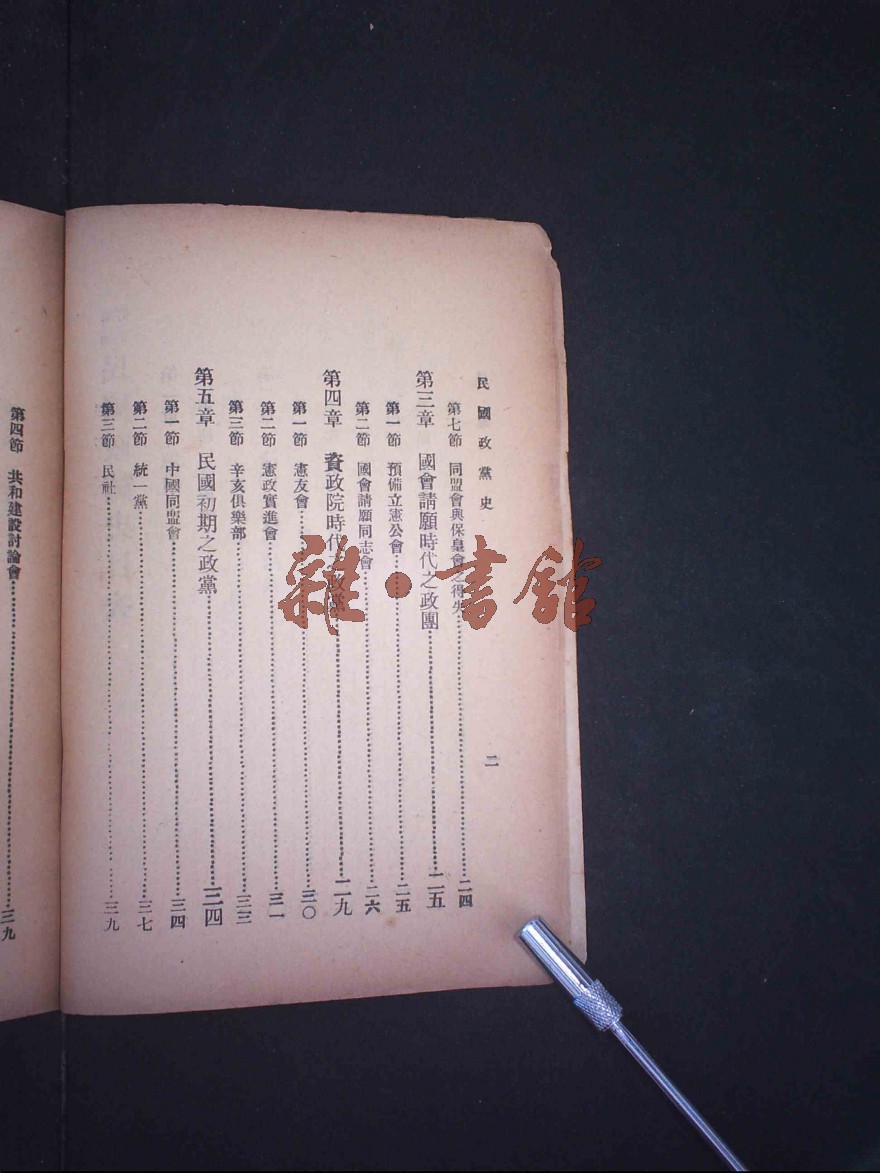 民國政黨史 二
第七節 同盟會與保皇會之得失……二四
第三章 國會請願時代之政團……二五
第一節 預備立憲公會……二五
第二節 國會請願同志會……二六
第四章 資政院時代之政黨……二九
第一節 憲友會……三〇
第二節 憲政實進會……三一
第三節 辛亥俱樂部……三三
第五章 民國初期之政黨……三四
第一節 中國同盟會……三四
第二節 統一黨……三七
第三節 民社……三九
第四節 共和建設討論會……三九
雜·書館